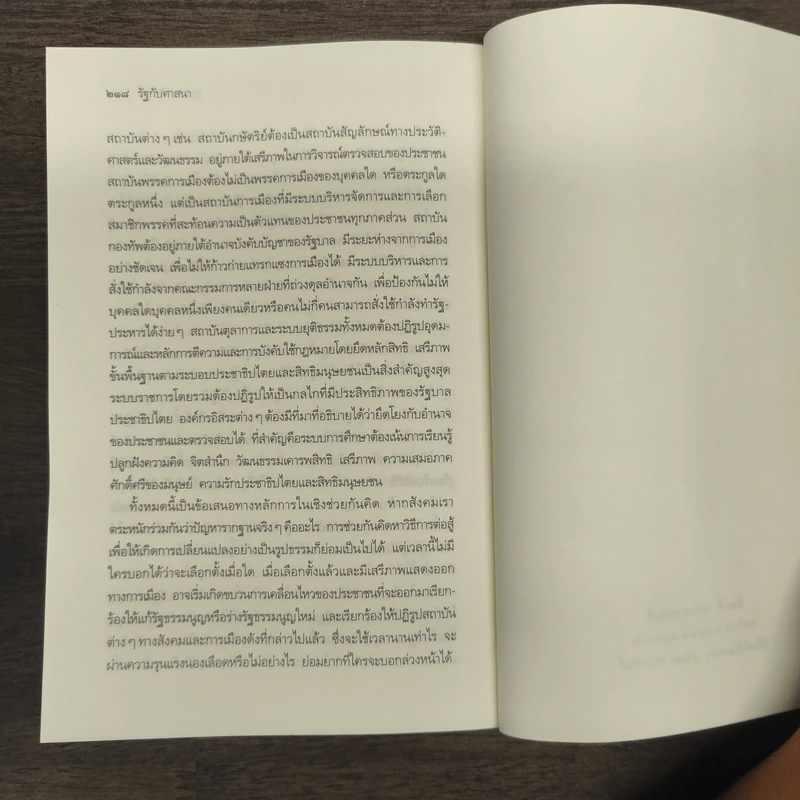 ๒๑๘ รัฐกับศาสนา
สถาบันต่าง ๆ เช่น สถาบันกษัตริย์ต้องเป็นสถาบันสัญลักษณ์ทางประวัติ-
ศาสตร์และวัฒนธรรม อยู่ภายใต้เสรีภาพในการวิจารณ์ตรวจสอบของประชาชน
สถาบันพรรคการเมืองต้องไม่เป็นพรรคการเมืองของบุคคลใด หรือตระกูลใด
ตระกูลหนึ่ง แต่เป็นสถาบันการเมืองที่มีระบบบริหารจัดการและการเลือก
สมาชิกพรรคที่สะท้อนความเป็นตัวแทนของประชาชนทุกภาคส่วน สถาบัน
กองทัพต้องอยู่ภายใต้อำนาจบังคับบัญชาของรัฐบาล มีระยะห่างจากการเมือง
อย่างชัดเจน เพื่อไม่ให้ก้าวก่ายแทรกแซงการเมืองได้ มีระบบบริหารและการ
สั่งใช้กำลังจากคณะกรรมการหลายฝ่ายที่ถ่วงดุลอำนาจกัน เพื่อป้องกันไม่ให้
บุคคลใดบุคคลหนึ่งเพียงคนเดียวหรือคนไม่กี่คนสามารถสั่งใช้กำลังทำรัฐ-
ประหารได้ง่าย ๆ สถาบันตุลาการและระบบยุติธรรมทั้งหมดต้องปฏิรูปอุดม-
การณ์และหลักการตีความและการบังคับใช้กฎหมายโดยยึดหลักสิทธิ เสรีภาพ
ขั้นพื้นฐานตามระบอบประชาธิปไตยและสิทธิมนุษยชนเป็นสิ่งสำคัญสูงสุด
ระบบราชการโดยรวมต้องปฏิรูปให้เป็นกลไกที่มีประสิทธิภาพของรัฐบาล
ประชาธิปไตย องค์กรอิสระต่าง ๆ ต้องมีที่มาที่อธิบายได้ว่ายึดโยงกับอำนาจ
ของประชาชนและตรวจสอบได้ ที่สำคัญคือระบบการศึกษาต้องเน้นการเรียนรู้
ปลูกฝังความคิด จิตสำนึก วัฒนธรรมเคารพสิทธิ เสรีภาพ ความเสมอภาค
ศักดิ์ศรีของมนุษย์ ความรักประชาธิปไตยและสิทธิมนุษยชน
ทั้งหมดนี้เป็นข้อเสนอทางหลักการในเชิงช่วยกันคิด หากสังคมเรา
ตระหนักร่วมกันว่าปัญหารากฐานจริง ๆ คืออะไร การช่วยกันคิดหาวิธีการต่อสู้
เพื่อให้เกิดการเปลี่ยนแปลงอย่างเป็นรูปธรรมก็ย่อมเป็นไปได้ แต่เวลานี้ไม่มี
ใครบอกได้ว่าจะเลือกตั้งเมื่อใด เมื่อเลือกตั้งแล้วและมีเสรีภาพแสดงออก
ทางการเมือง อาจเริ่มเกิดขบวนการเคลื่อนไหวของประชาชนที่จะออกมาเรียก-
ร้องให้แก้รัฐธรรมนูญหรือร่างรัฐธรรมนูญใหม่ และเรียกร้องให้ปฏิรูปสถาบัน
ต่าง ๆ ทางสังคมและการเมืองดังที่กล่าวไปแล้ว ซึ่งจะใช้เวลานานเท่าไร จะ
ผ่านความรุนแรงนองเลือดหรือไม่อย่างไร ย่อมยากที่ใครจะบอกล่วงหน้าได้